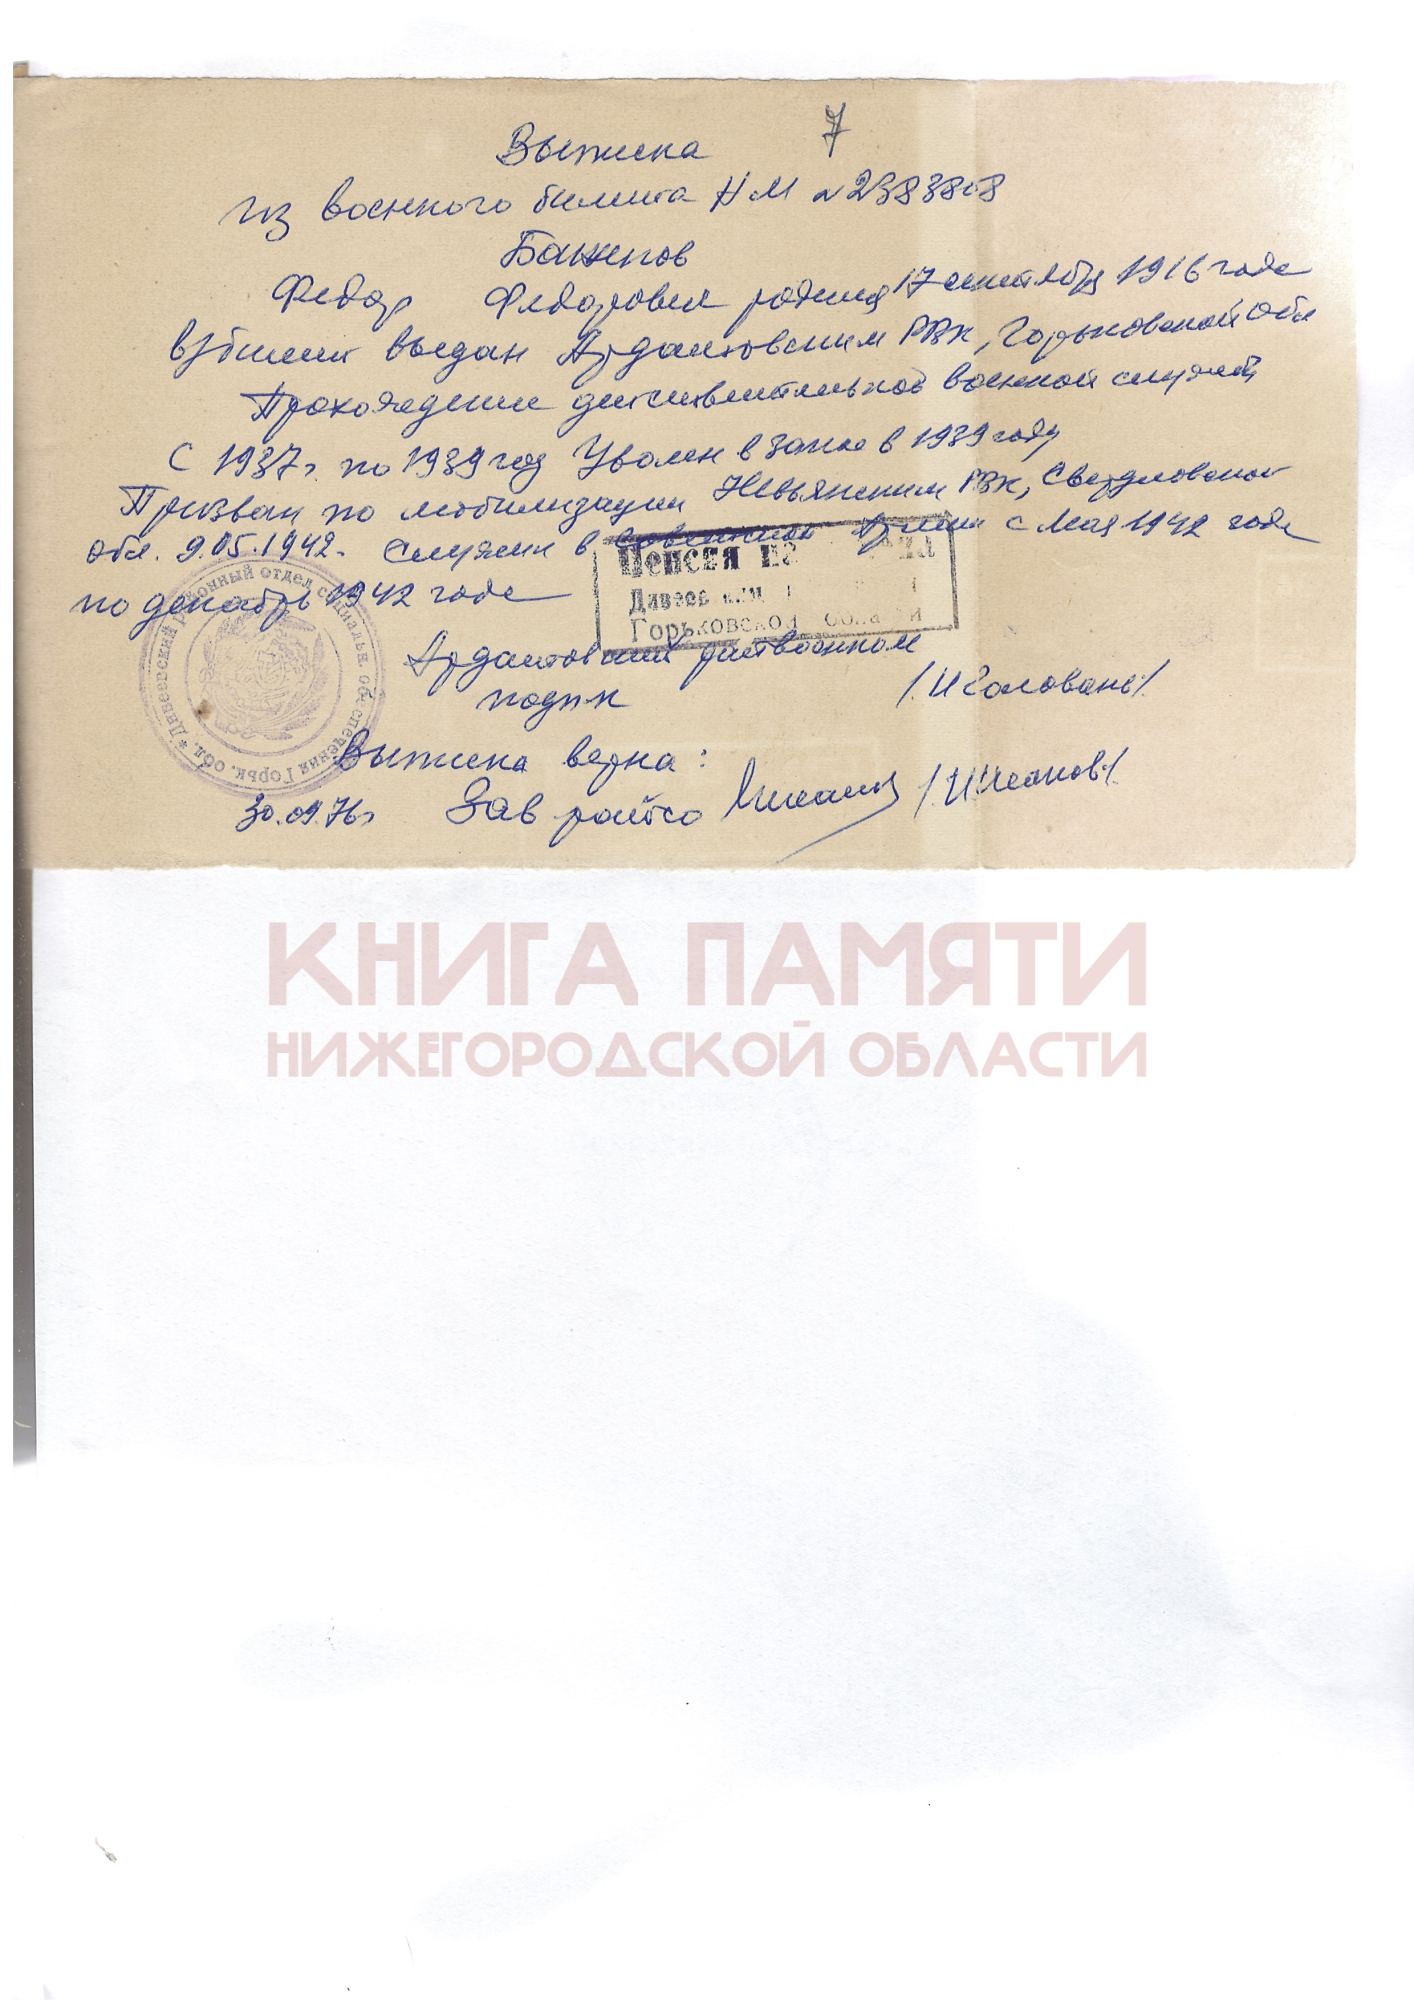 7
Выписка
из военного билета НМ №2383808
Баженов
Федор Федорович родился 17 сентября 1916 года
в/билет выдан Ардатовским РВК, Горьковской обл
Прохождение действительной военной службы
С 1937г. по 1939 год Уволен в запас в 1939 году
Призван по мобилизации Невьянским РВК, Свердловской
обл. 9.05.1942. Служил в Советской Армии с мая 1942 года
по декабрь 1942 года
Пенсия
Дивеев
Горьковской области
Ардатовский райвоенком
подпк /И Головань/
Выписка верна:
30.09.76г Зав райсо /И.Исанов/
* Дивеевский районный отдел социальн. обеспечения Горьк. обл.
КНИГА ПАМЯТИ
НИЖЕГОРОДСКОЙ ОБЛАСТИ